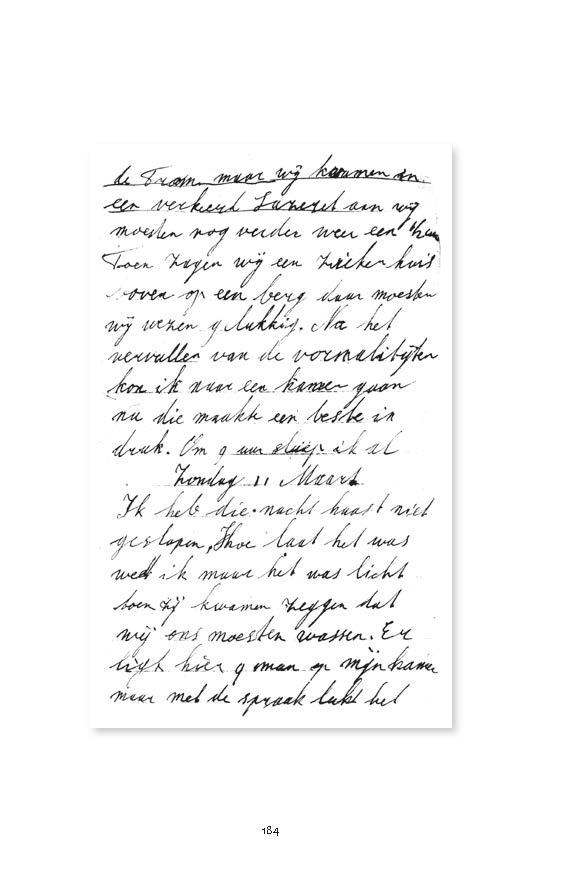 de Tram. maar wij kwammen in
een verkeerd Lazeret aan wij
moesten nog verder weer een 1/2 uur
Toen zagen wij een zieker huis
boven op een berg daar moesten
wij wezen glukkig. Na het
vervullen van de vormalitijten
kon ik naar een kamer gaan
nu die maakte een beste in
druk. Om 9 uur sliep ik al
Zondag 11 Maart
Ik heb die nacht haast niet
geslapen, hoe laat het was
weet ik maar het was licht
toen zij kwamen zeggen dat
wij ons moesten wassen. Er
ligt hier 9 man op mijn kamer
maar met de spraak lukt het
184